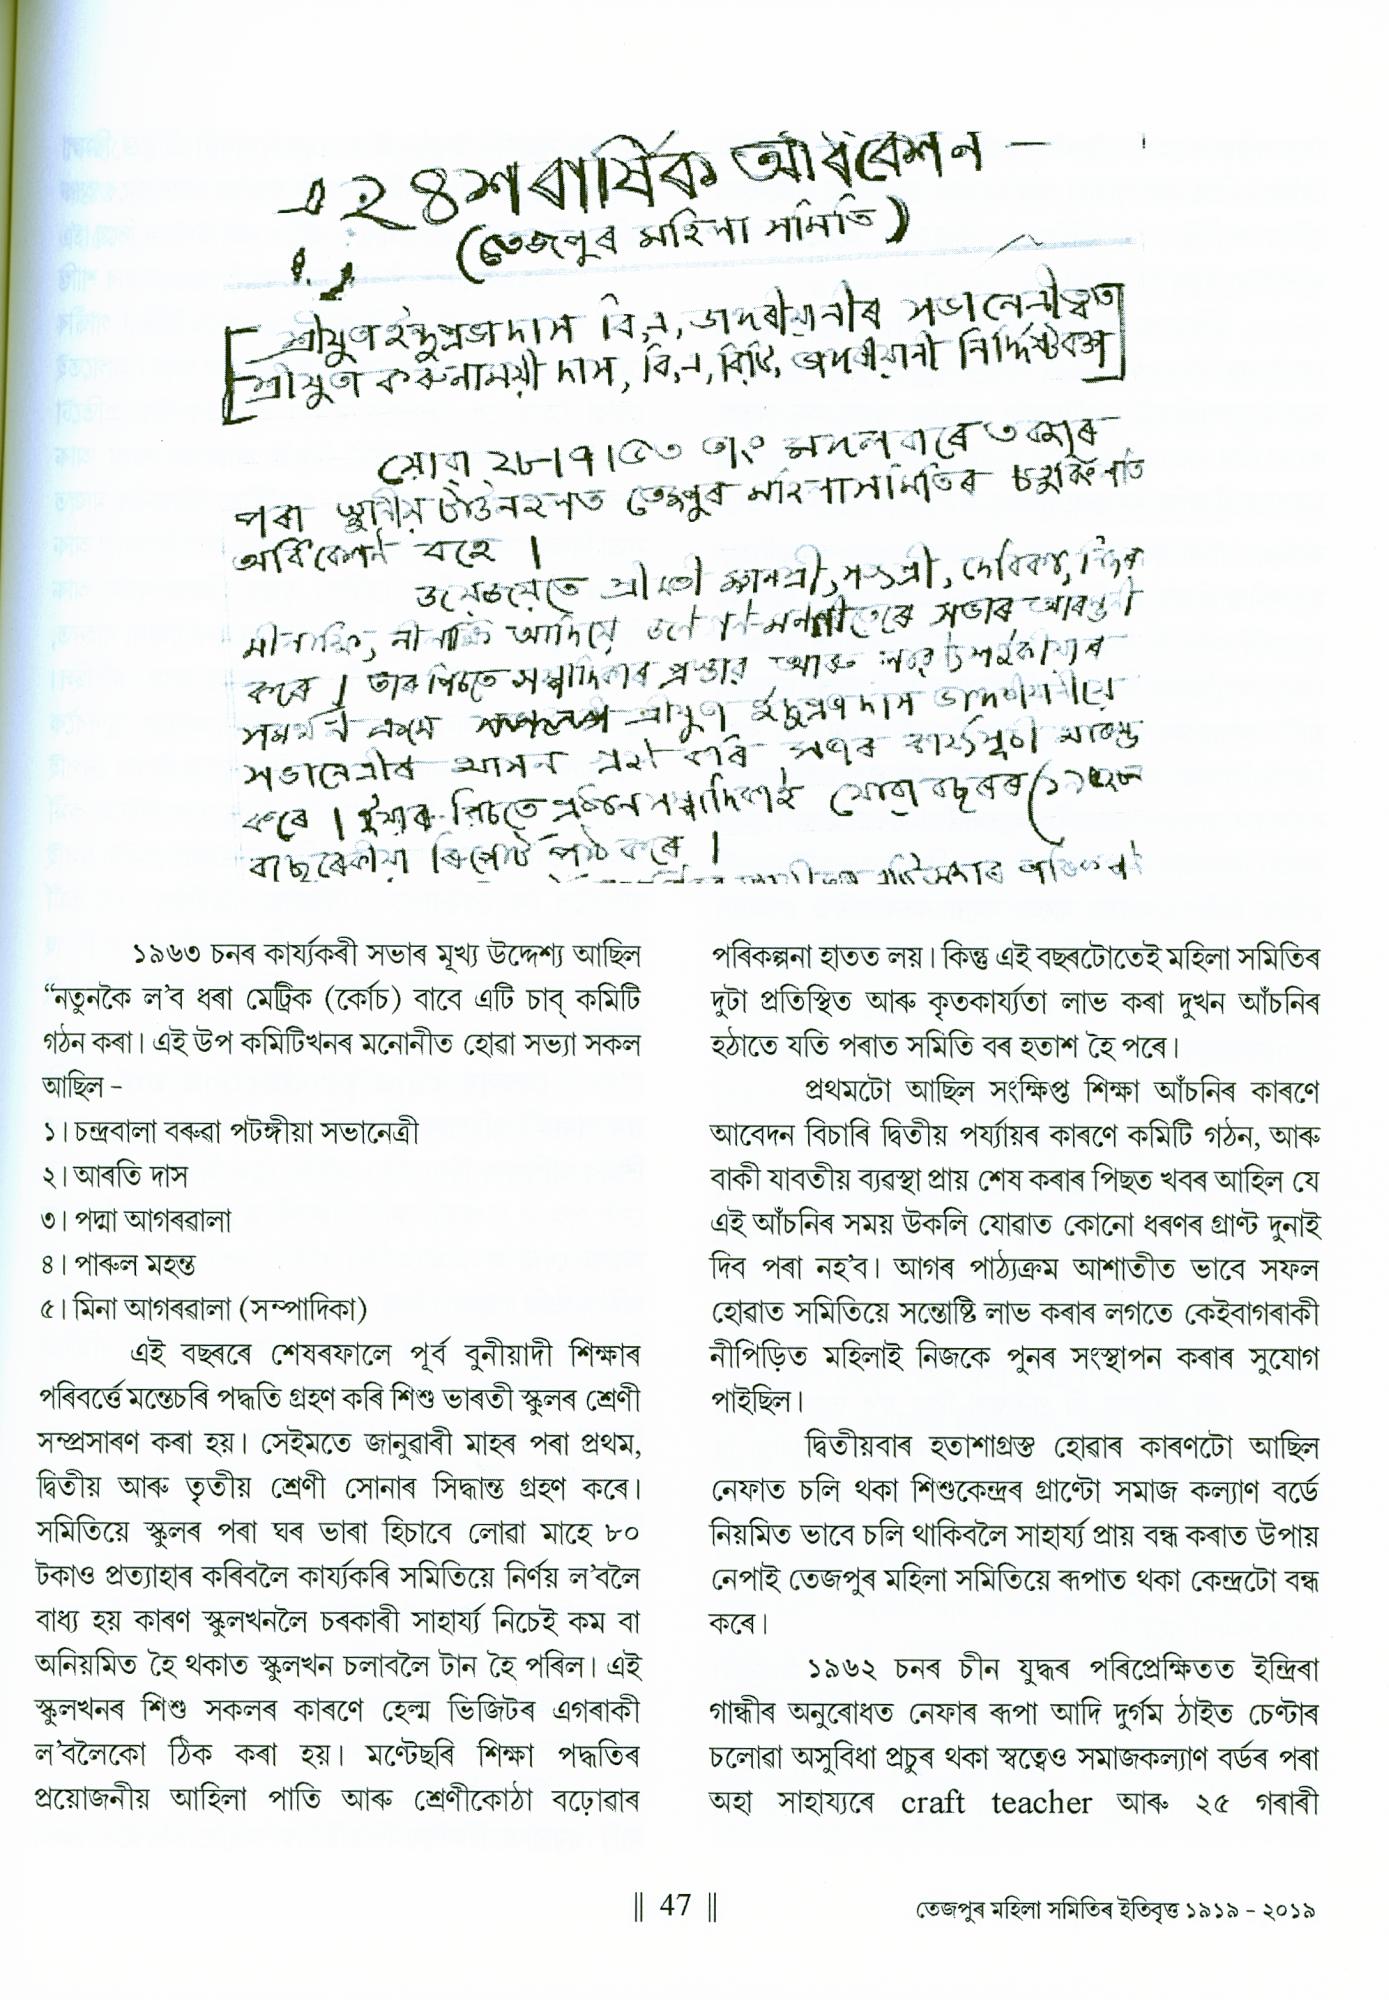 ২৪শ বাৰ্ষিক অধিবেশন —
(তেজপুৰ মহিলা সমিতি)
শ্ৰীযুতা ইন্দুপ্ৰভা দাস বি, এ, ডাঙ্গৰীয়ানীৰ সভানেত্ৰীত্বত
শ্ৰীযুতা কৰুনাময়ী দাস, বি, এ, বিটি, নিৰ্দ্দিষ্টবক্তা
যোৱা ২৮।৭।৫৩ তাং মঙ্গলবাৰে
পৰা স্থানীয় টাউনহলত তেজপুৰ মহিলা সমিতিৰ
অধিবেশন বহে।
জয়জয়তে শ্ৰীমতী
মীনাক্ষি, নীলাক্ষি আদিয়ে সভাৰ আৰম্ভনী
কৰে। তাৰ পিচতে সম্পাদিকাৰ প্ৰস্তাৱ আৰু
সমৰ্থন এক্ৰমে শ্ৰীযুতা দাস ডাঙ্গৰীয়ানীয়ে
সভানেত্ৰীৰ আসন গ্ৰহণ কৰি, সভাৰ কাৰ্য্যসূচী আৰম্ভ
কৰে। ইয়াৰ পিচতে সম্পাদিকাই যোৱা বছৰৰ
বাছৰেকীয়া ৰিপোৰ্ট পাঠ কৰে।
১৯৬৩ চনৰ কাৰ্য্যকৰী সভাৰ মূখ্য উদ্দেশ্য আছিল
“নতুনকৈ ল’ব ধৰা মেট্ৰিক (কোৰ্চ) বাবে এটি চাব্ কমিটি
গঠন কৰা। এই উপ কমিটিখনৰ মনোনীত হোৱা সভ্যা সকল
আছিল -
১। চন্দ্ৰবালা বৰুৱা পটঙ্গীয়া সভানেত্ৰী
২। আৰতি দাস
৩। পদ্মা আগৰৱালা
৪। পাৰুল মহন্ত
৫। মিনা আগৰৱালা (সম্পাদিকা)
এই বছৰৰে শেষৰফালে পূৰ্ব বুনীয়াদী শিক্ষাৰ
পৰিবৰ্ত্তে মন্তেচৰি পদ্ধতি গ্ৰহণ কৰি শিশু ভাৰতী স্কুলৰ শ্ৰেণী
সম্প্ৰসাৰণ কৰা হয়। সেইমতে জানুৱাৰী মাহৰ পৰা প্ৰথম,
দ্বিতীয় আৰু তৃতীয় শ্ৰেণী সোনাৰ সিদ্ধান্ত গ্ৰহণ কৰে।
সমিতিয়ে স্কুলৰ পৰা ঘৰ ভাৰা হিচাবে লোৱা মাহে ৮০
টকাও প্ৰত্যাহাৰ কৰিবলৈ কাৰ্য্যকৰি সমিতিয়ে নিৰ্ণয় ল’বলৈ
বাধ্য হয় কাৰণ স্কুলখনলৈ চৰকাৰী সাহাৰ্য্য নিচেই কম বা
অনিয়মিত হৈ থকাত স্কুলখন চলাবলৈ টান হৈ পৰিল। এই
স্কুলখনৰ শিশু সকলৰ কাৰণে হেল্ম ভিজিটৰ এগৰাকী
ল’বলৈকো ঠিক কৰা হয়। মণ্টেছৰি শিক্ষা পদ্ধতিৰ
প্ৰয়োজনীয় আহিলা পাতি আৰু শ্ৰেণীকোঠা বঢ়োৱাৰ
পৰিকল্পনা হাতত লয়। কিন্তু এই বছৰটোতেই মহিলা সমিতিৰ
দুটা প্ৰতিস্থিত আৰু কৃতকাৰ্য্যতা লাভ কৰা দুখন আঁচনিৰ
হঠাতে যতি পৰাত সমিতি বৰ হতাশ হৈ পৰে।
প্ৰথমটো আছিল সংক্ষিপ্ত শিক্ষা আঁচনিৰ কাৰণে
আবেদন বিচাৰি দ্বিতীয় পৰ্য্যায়ৰ কাৰণে কমিটি গঠন, আৰু
বাকী যাবতীয় ব্যৱস্থা প্ৰায় শেষ কৰাৰ পিছত খবৰ আহিল যে
এই আঁচনিৰ সময় উকলি যোৱাত কোনো ধৰণৰ গ্ৰাণ্ট দুনাই
দিব পৰা নহ’ব। আগৰ পাঠ্যক্ৰম আশাতীত ভাবে সফল
হোৱাত সমিতিয়ে সন্তোষ্টি লাভ কৰাৰ লগতে কেইবাগৰাকী
নীপিড়িত মহিলাই নিজকে পুনৰ সংস্থাপন কৰাৰ সুযোগ
পাইছিল।
দ্বিতীয়বাৰ হতাশাগ্ৰস্ত হোৱাৰ কাৰণটো আছিল
নেফাত চলি থকা শিশুকেন্দ্ৰৰ গ্ৰাণ্টো সমাজ কল্যাণ বৰ্ডে
নিয়মিত ভাবে চলি থাকিবলৈ সাহাৰ্য্য প্ৰায় বন্ধ কৰাত উপায়
নেপাই তেজপুৰ মহিলা সমিতিয়ে ৰূপাত থকা কেন্দ্ৰটো বন্ধ
কৰে।
১৯৬২ চনৰ চীন যুদ্ধৰ পৰিপ্ৰেক্ষিতত ইন্দ্ৰিৰা
গান্ধীৰ অনুৰোধত নেফাৰ ৰূপা আদি দুৰ্গম ঠাইত চেণ্টাৰ
চলোৱা অসুবিধা প্ৰচুৰ থকা স্বত্বেও সমাজকল্যাণ বৰ্ডৰ পৰা
অহা সাহায্যৰে craft teacher আৰু ২৫ গৰাৰী
|| 47 ||
তেজপুৰ মহিলা সমিতিৰ ইতিবৃত্ত ১৯১৯ - ২০১৯